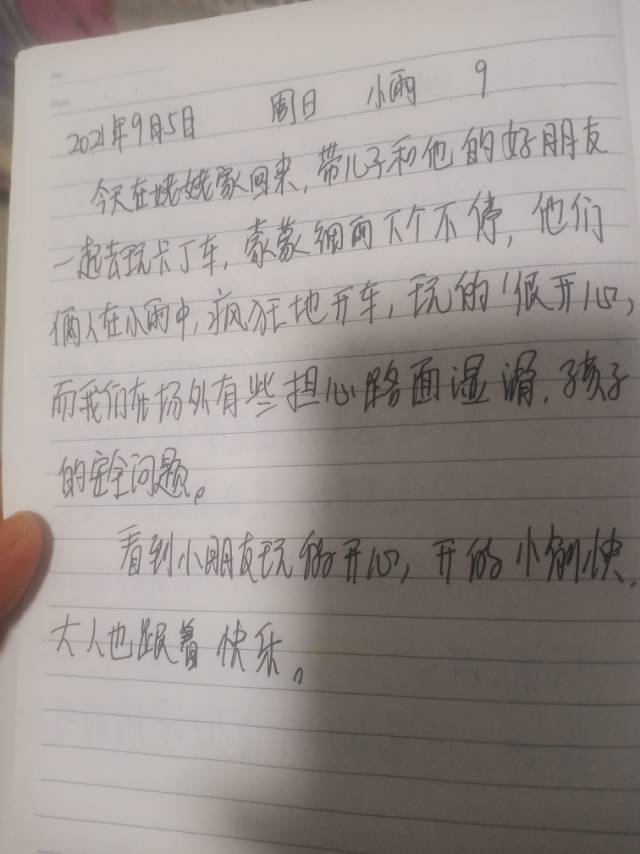 No.
Date
2021年9月5日 周日 小雨 9
今天在姥姥家回来,带儿子和他的好朋友
一起去玩卡丁车,蒙蒙细雨下个不停,他们
俩人在小雨中,疯狂地开车,玩的很开心,
而我们在场外有些担心路面湿滑,孩子
的安全问题。
看到小朋友玩的开心,开的愉快,
大人也跟着快乐。